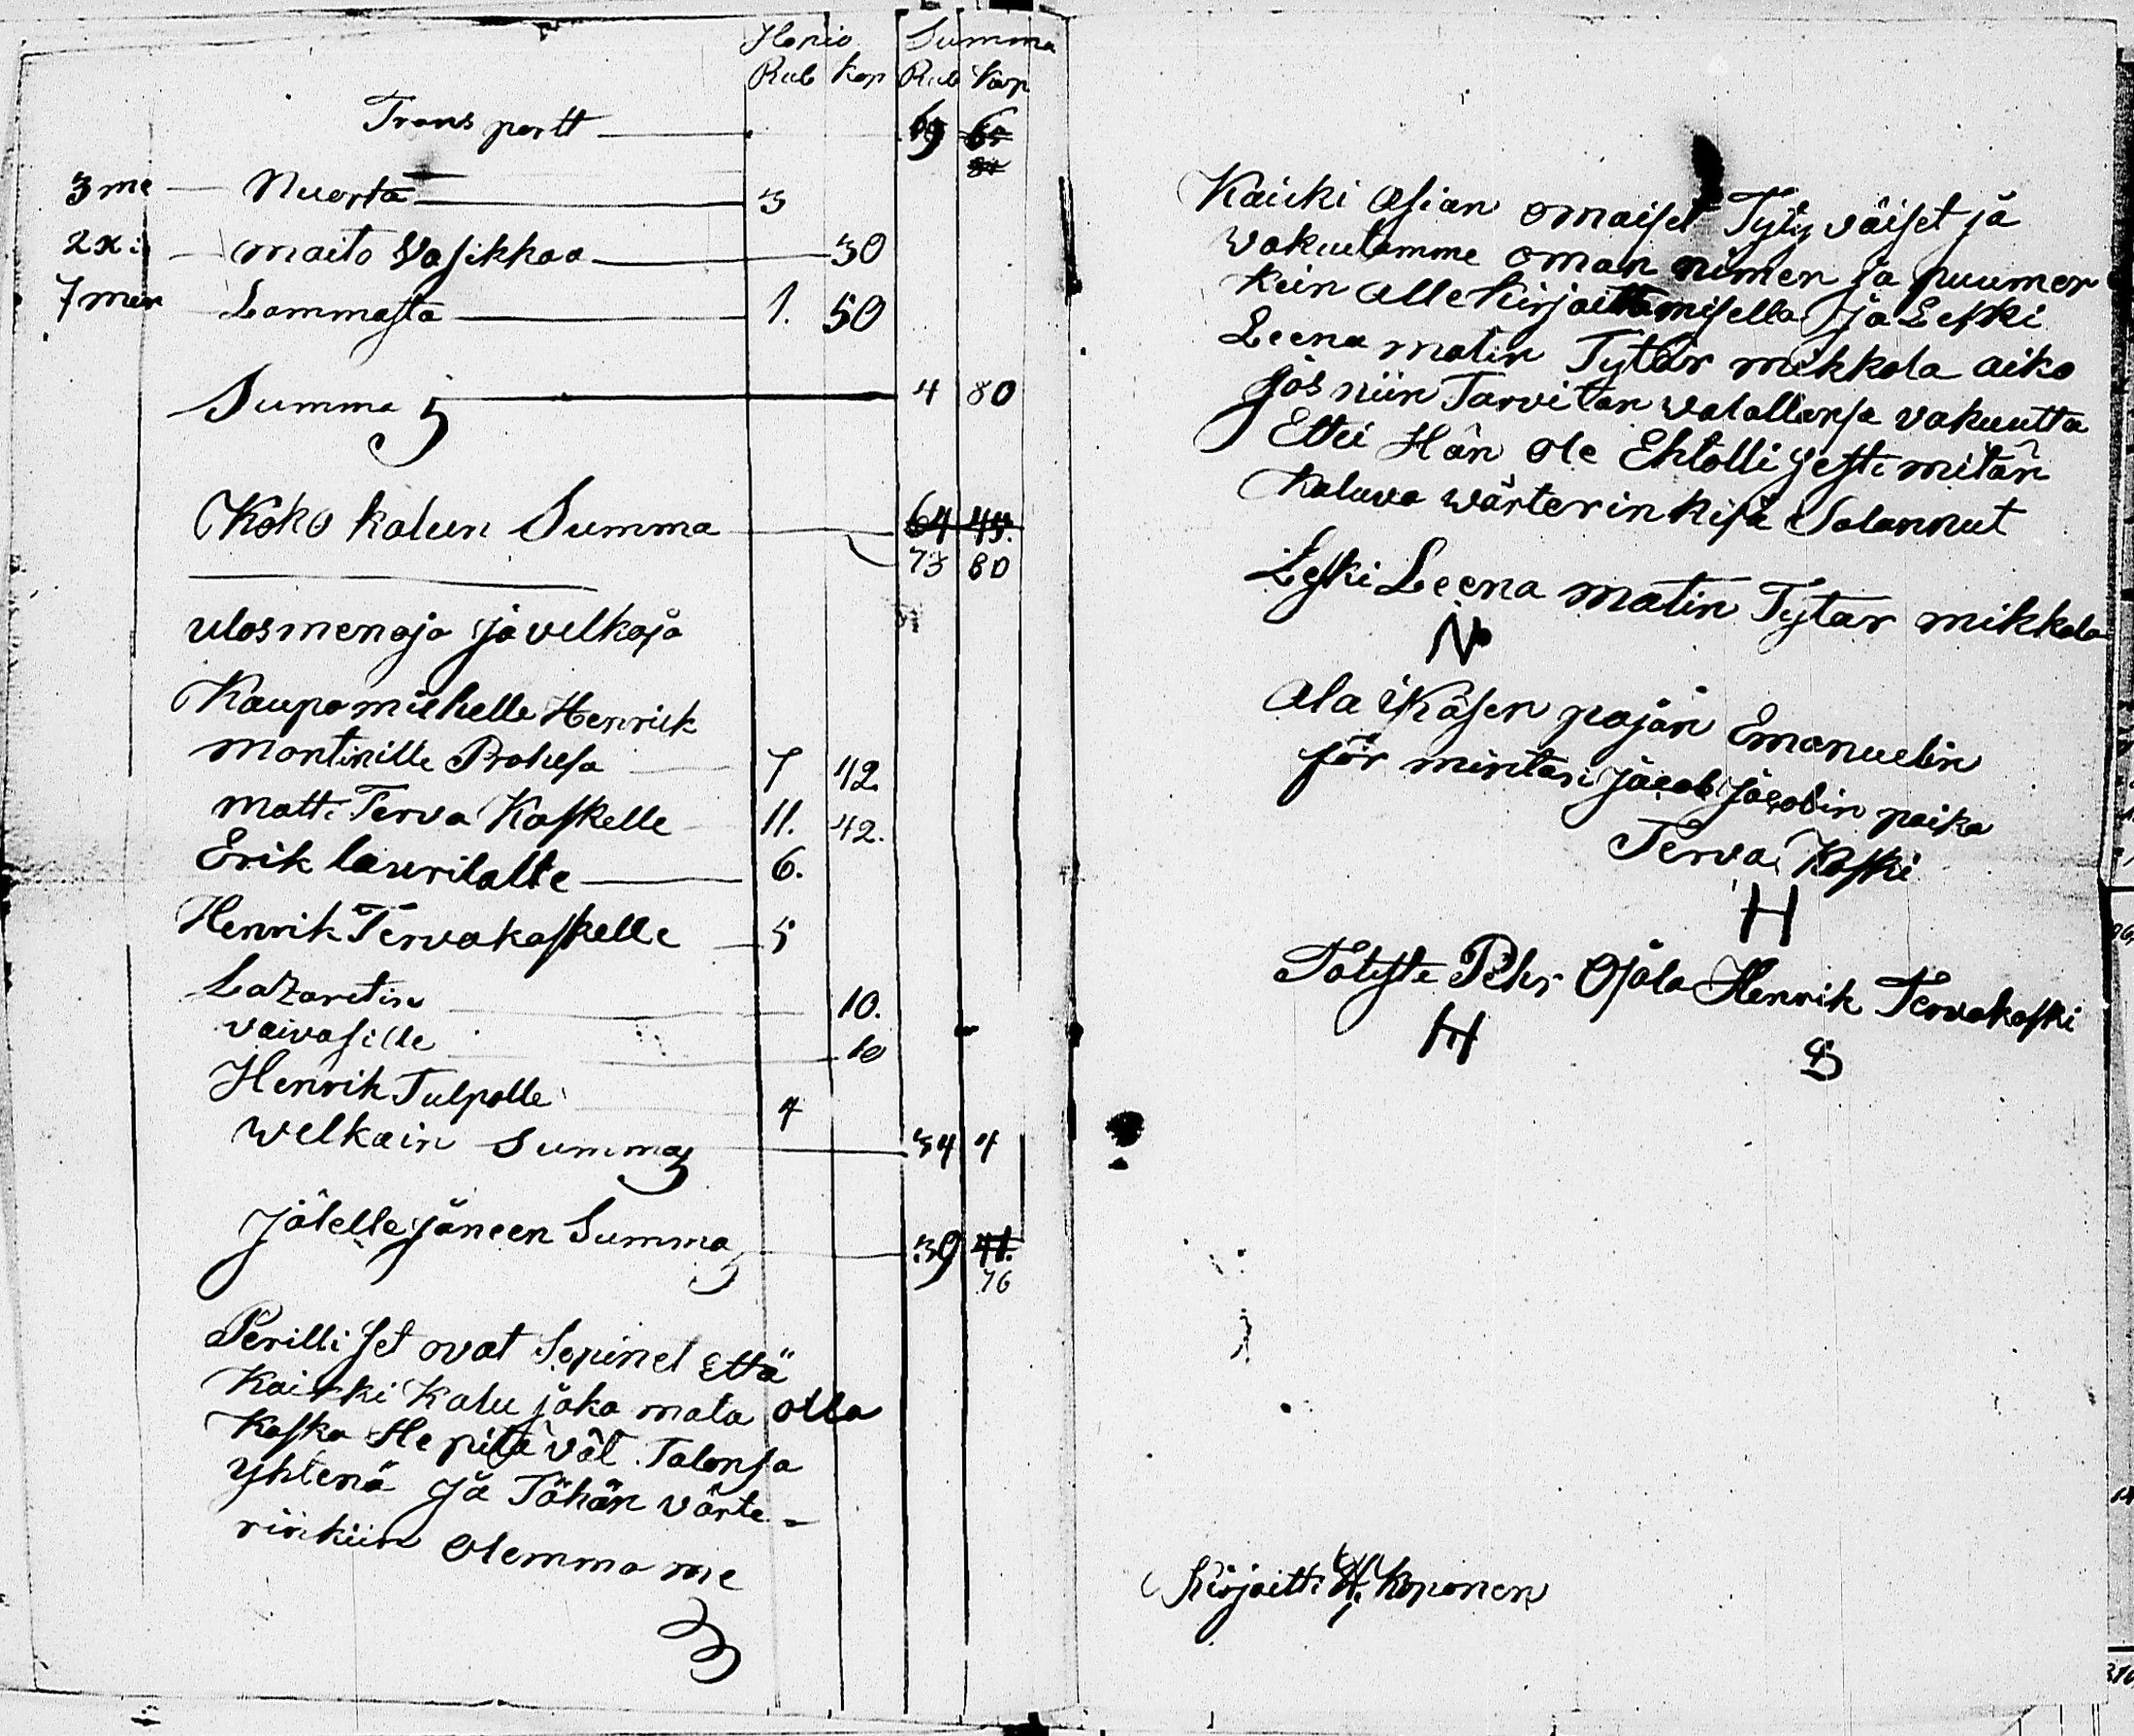 Hinio Summa
Rub kop Rub kop
Transportt 69
3 me Nuorta 3
2 xi maito Vasikkaa 30
7 men Lammasta 1. 50
Summa 4 80
Koko kalun Summa 64 45.
73 80
ulosmenoja ja velkoja
Kaupamiehelle Henrik
Montinille Prohesa 7 42
Matti Terva Koskelle 11. 42.
Erik laurilalle 6.
Henrik Tervakoskelle 5
Lazaretin 10.
vaivasille 10
Henrik Tulpalle 4
welkain Summa 34 4
Jälelle jäneen Summa 39 41.
76
Perilliset ovat Sopinet että
Kaikki Kalu joka mata olla
Koska He pitävät Talonsa
yhtenä ja Tähän värte-
rinkiin olemma me
Kaicki Asian omaiset Tytyväiset ja
vakutamme oman nimen ja puumer
kein alle kirjaittamisella ja Leski
Leena matin Tytär mikkola aiko
jos niin Tarvitan valallansa vakuutta
Ettei Hän ole Ehtollisesti mitän
Kaluva wärterinkisä Salannut
Leski Leena matin Tytär mikkola
N
Ala ikäsen pojan Emanuelin
för mintari Jacob Jacobin poika
Terva Koski
H
Totiste Pehr Ojala Henrik Tervakoski
H
Kirjoitti H. Koponen